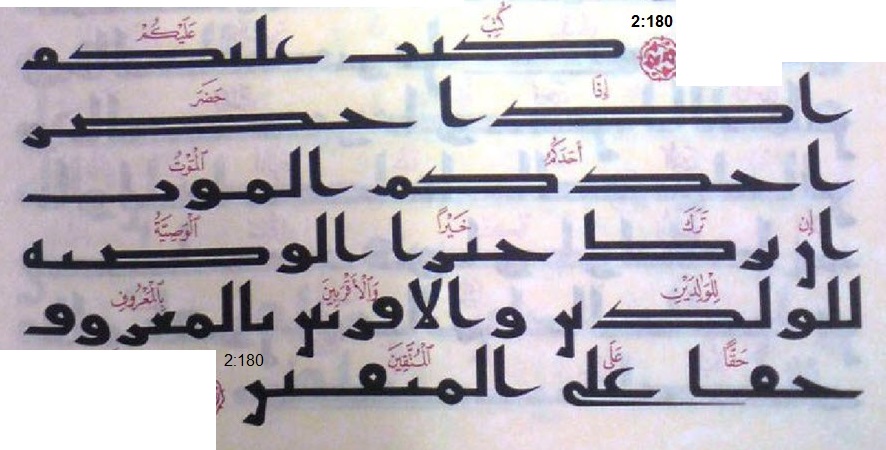 2:180
كُتِبَ عَلَيْكُمْ
كتب عليكم
إِذَا حَضَرَ
اذا حضر
أَحَدَكُمُ ٱلْمَوْتُ
احدكم الموت
إِن تَرَكَ خَيْرًا ٱلْوَصِيَّةُ
ان ترك خيرا الوصيه
لِلْوَٰلِدَيْنِ وَٱلْأَقْرَبِينَ بِٱلْمَعْرُوفِ
للولدين والاقربين بالمعروف
حَقًّا عَلَى ٱلْمُتَّقِينَ
حقا على المتقين
2:180